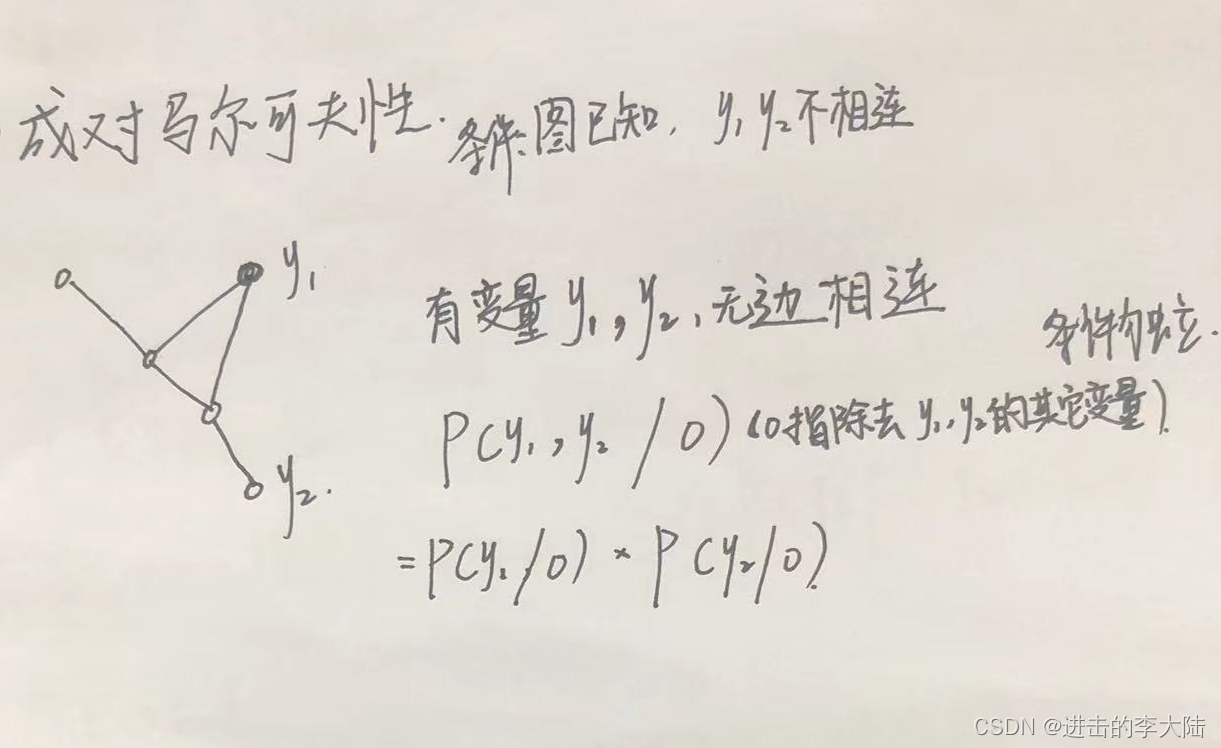 成对马尔可夫性. 条件:图已知, y₁ y₂不相连
y₁
有变量 y₁, y₂, 无边相连
条件独立.
P(y₁, y₂ / O) (O指除去 y₁, y₂的其它变量).
y₂.
=P(y₁/O) × P(y₂/O)
CSDN @进击的李大陆